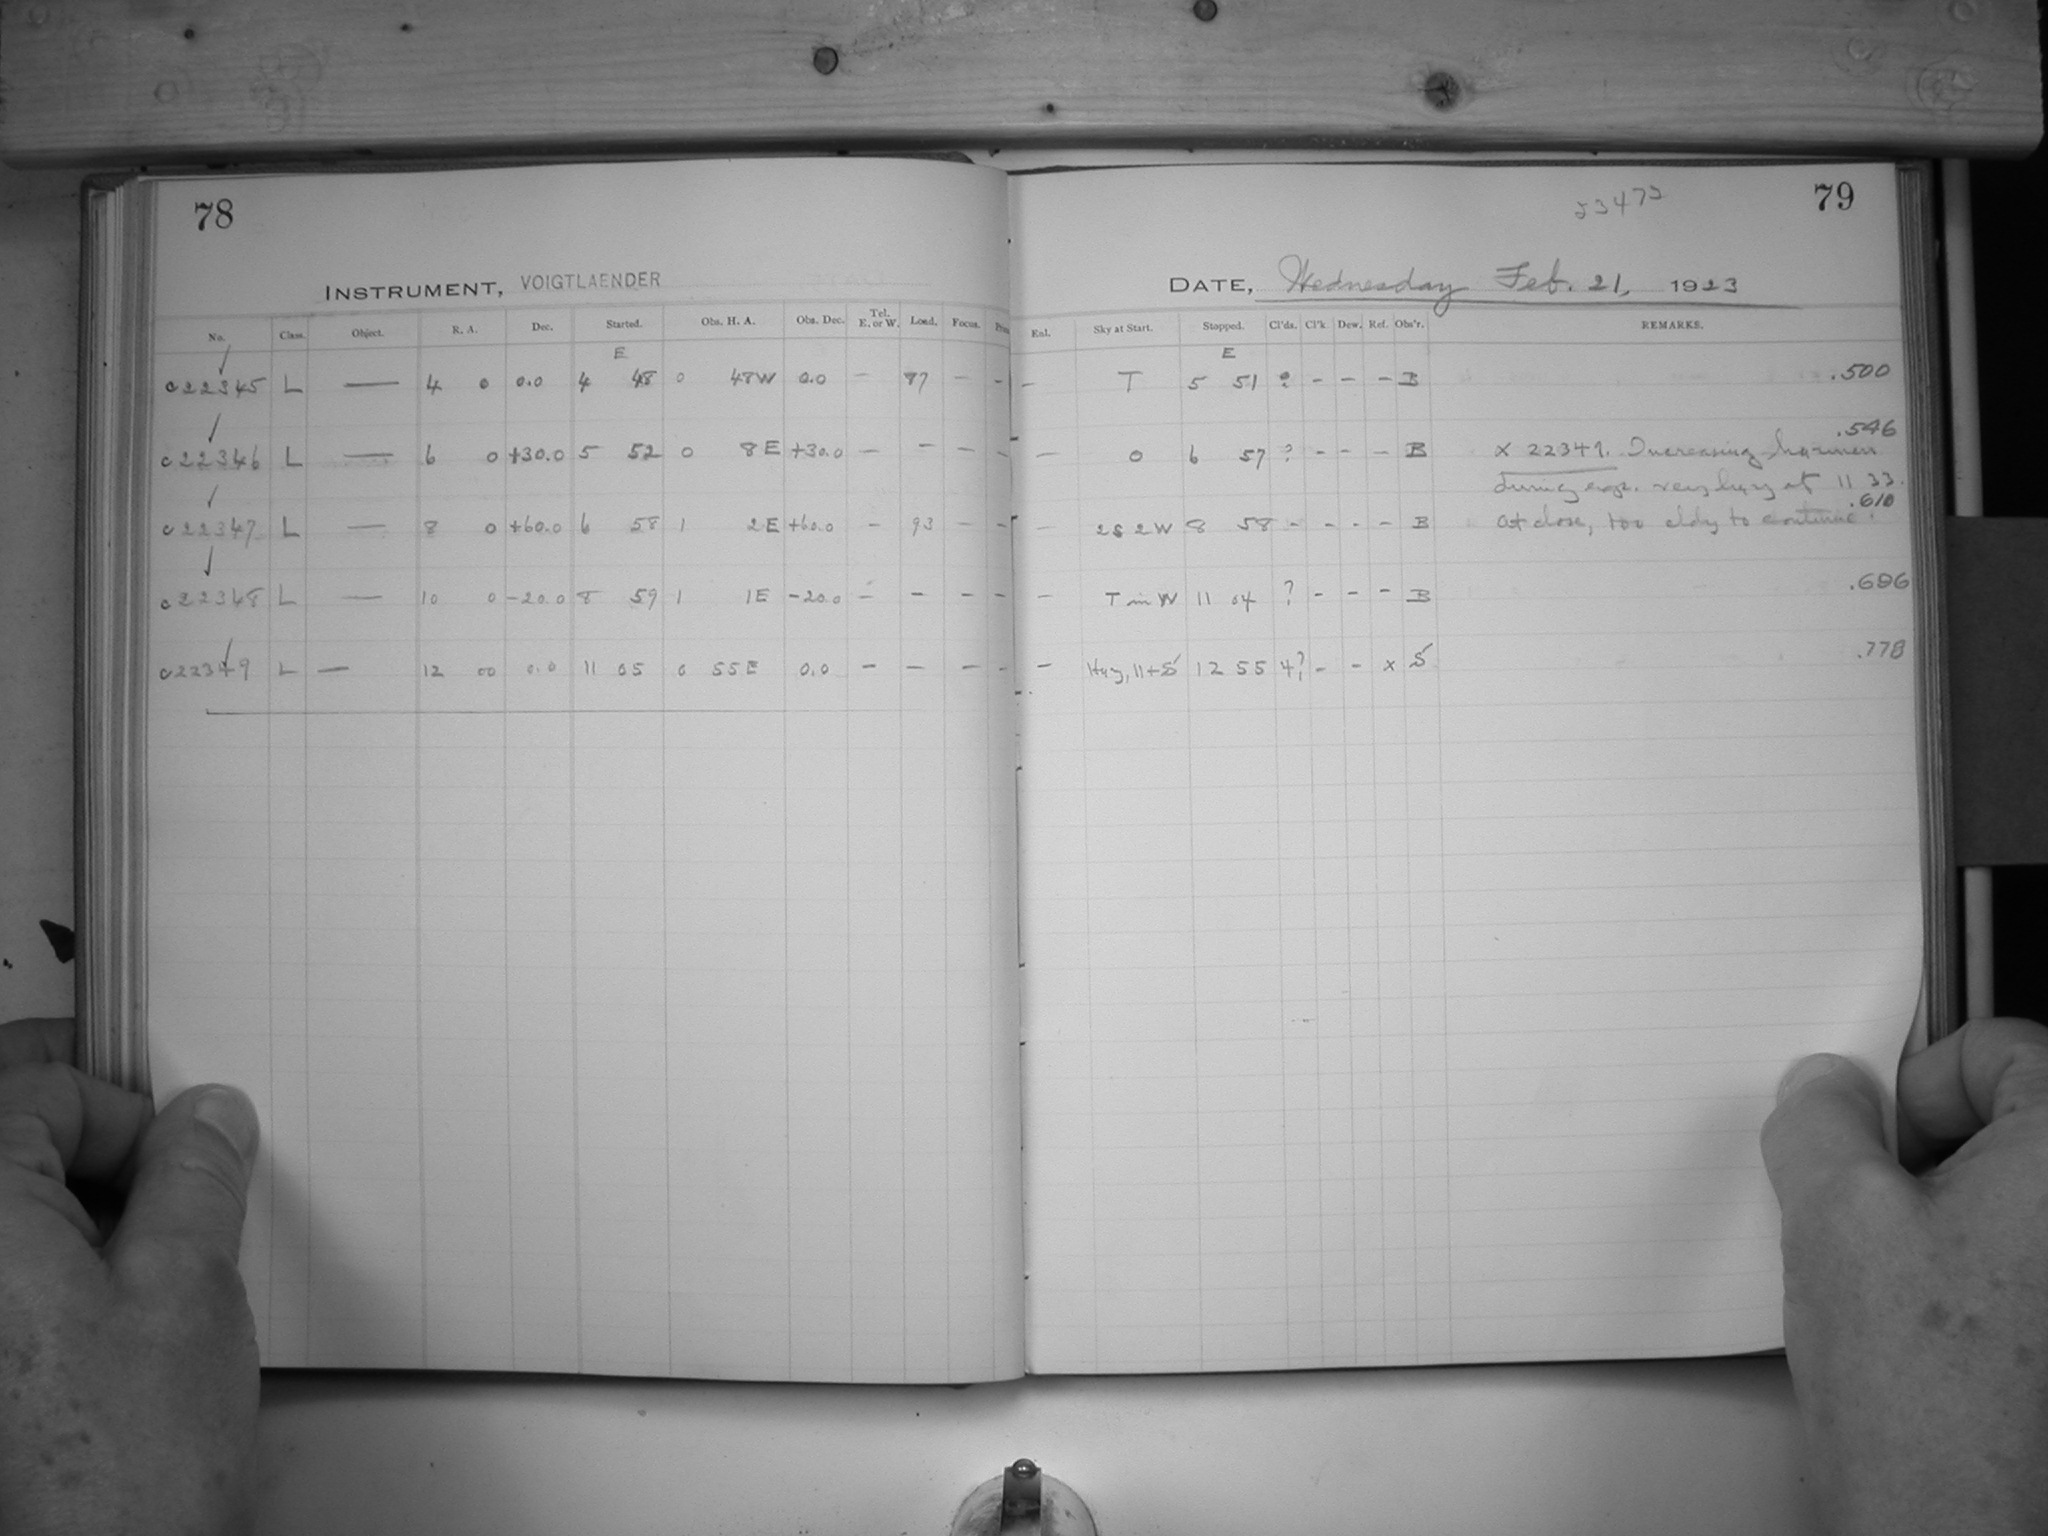 78
INSTRUMENT, VOIGTLAENDER
No. Class. Object. R. A. Dec. Started. Obs. H. A. Obs. Dec. Tel. E. or W. Load. Focus.
E
c22345 L — 4 0 0.0 4 48 0 48W 0.0 — 87 — -
c22346 L — 6 0 +30.0 5 52 0 8E +30.0 — - — -
c22347 L — 8 0 +60.0 6 58 1 2E +60.0 - 93 - -
c22348 L — 10 0 -20.0 8 59 1 1E -20.0 - - - -
c22349 L — 12 00 0.0 11 05 0 55E 0.0 - - - -
23472
79
DATE, Wednesday Feb. 21, 1923
Rnl. Sky at Start. Stopped. Cl'ds. Cl'k. Dew. Ref. Obs'r. REMARKS.
E
- T 5 51 ? - - - B .500
.546
— 0 6 57 ? - - - B X 22349. Increasing haziness
during exp. very hazy at 11 33.
.610
- 2S 2W 8 58 - - - - B At close, too cldy to continue.
- T in W 11 04 ? - - - B .686
- Hazy, 11+S 12 55 4? - - x S .778